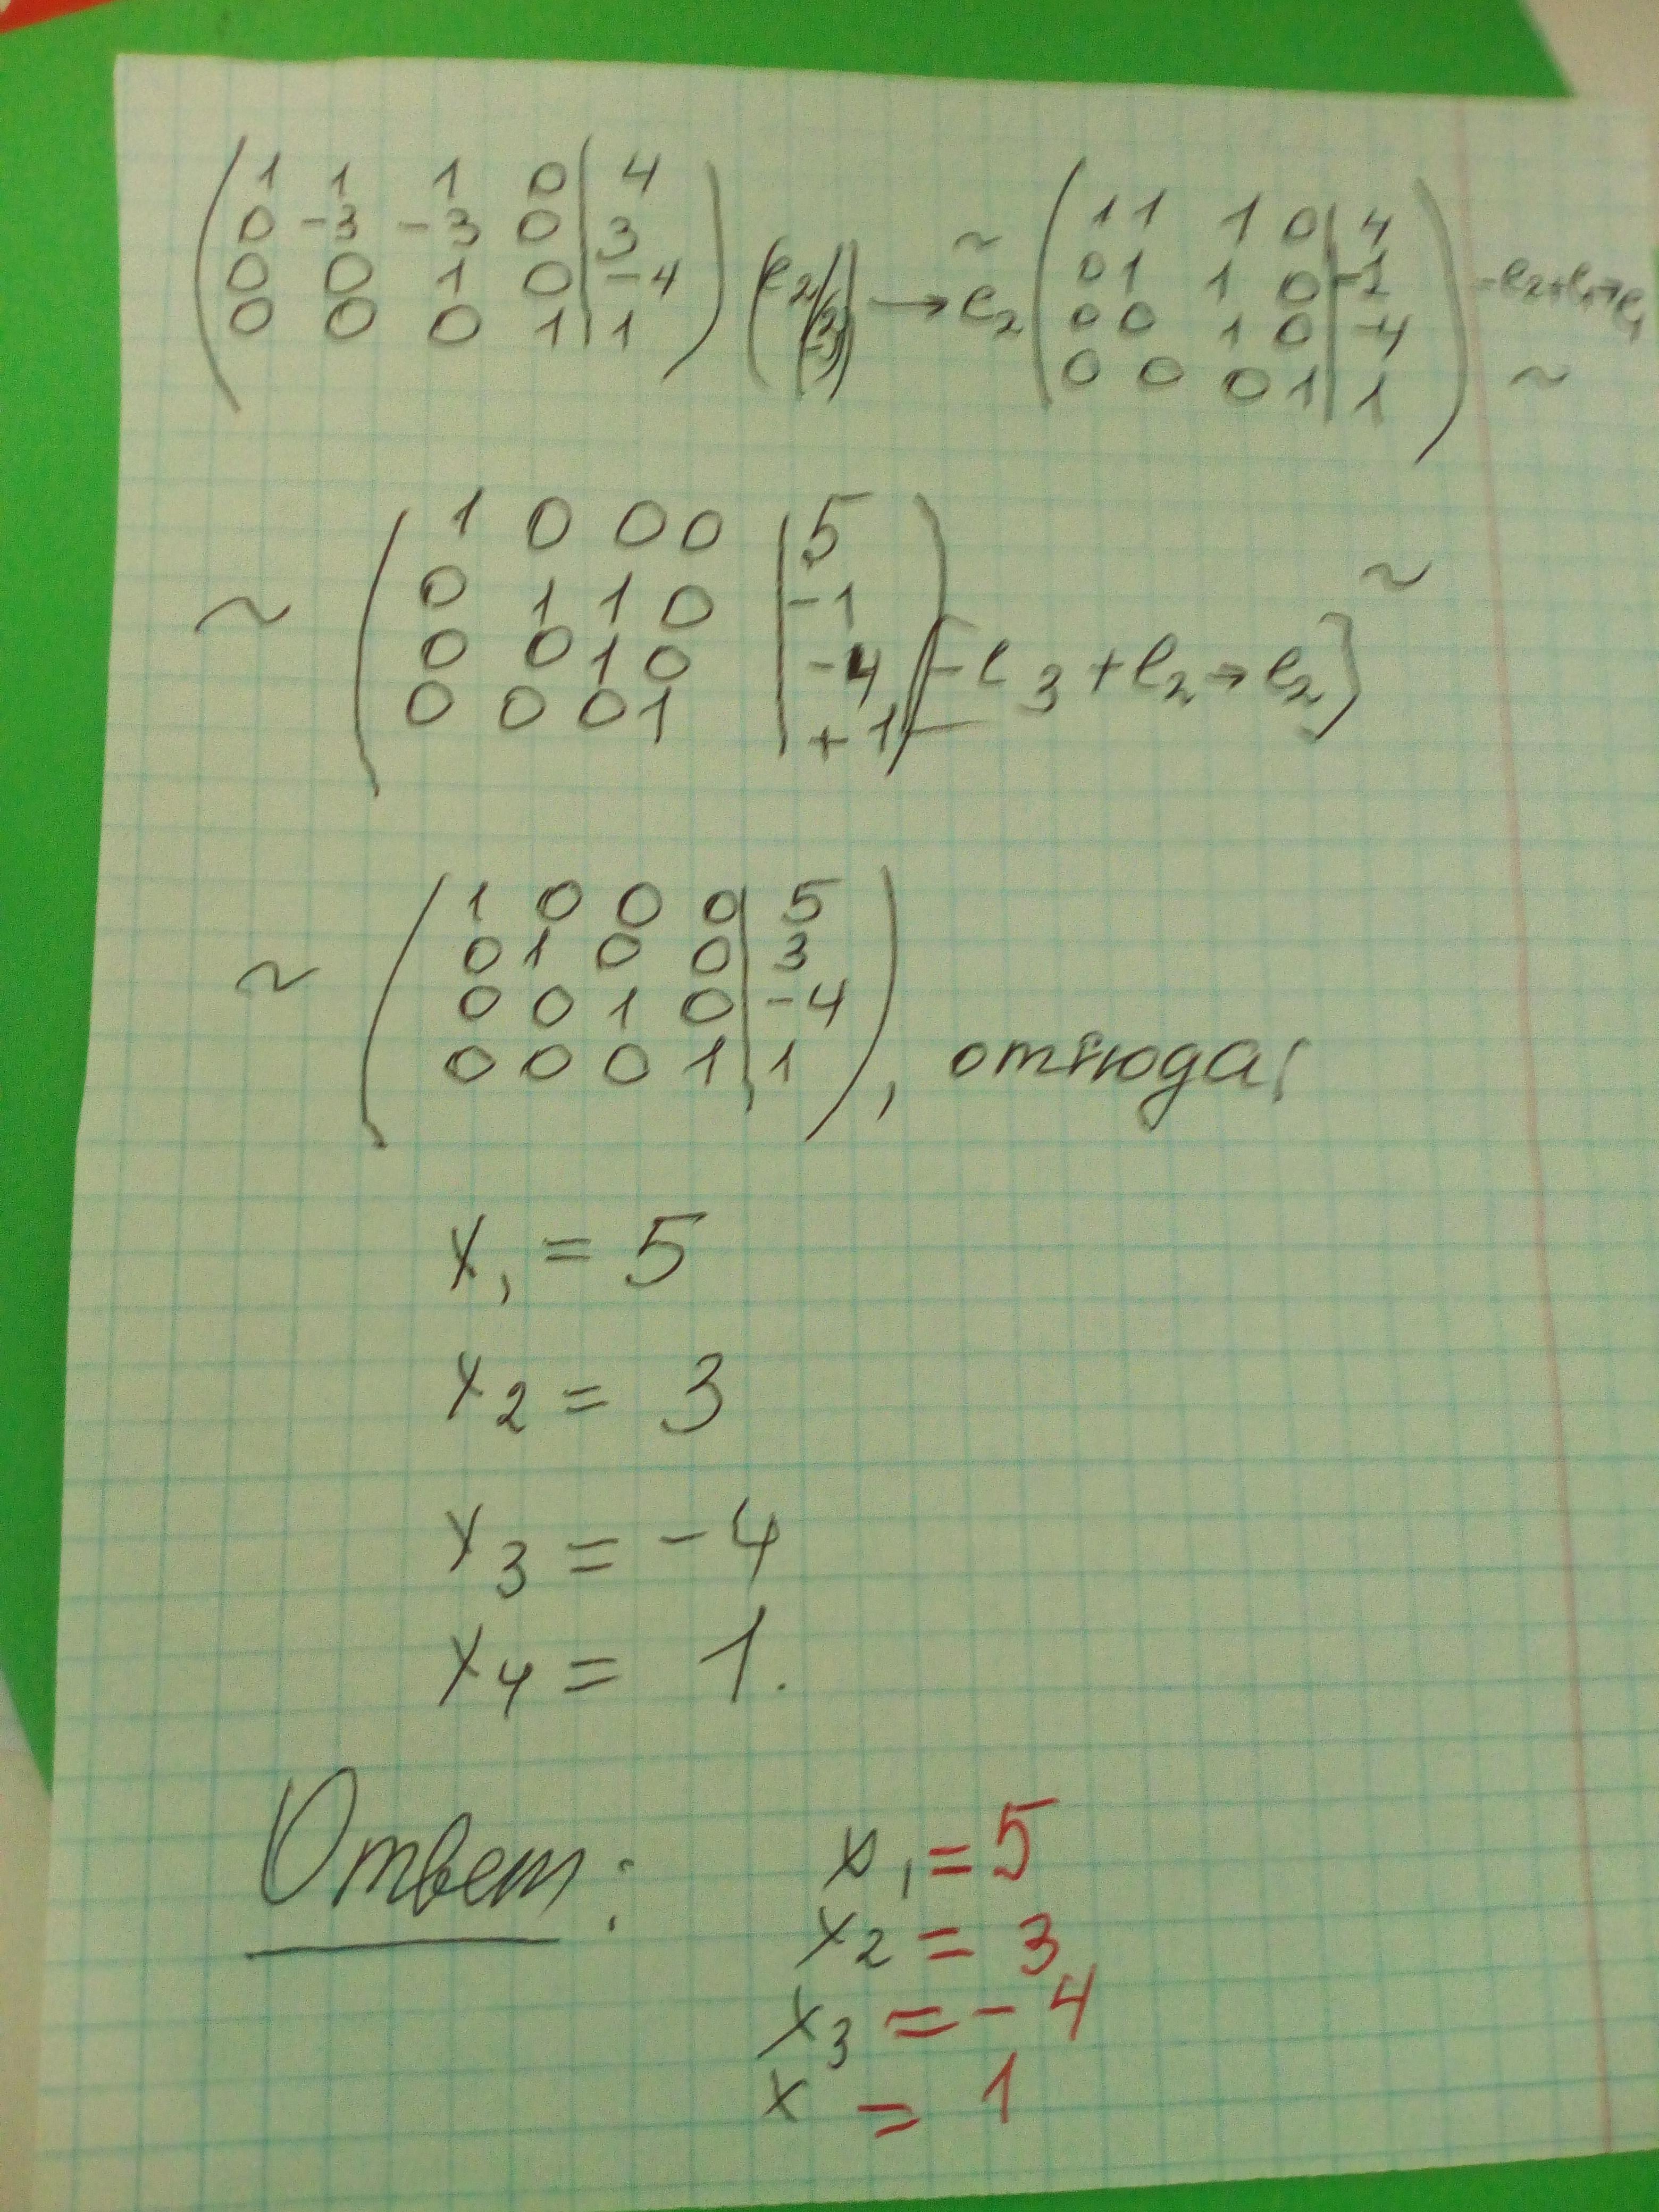 ( 1 1 1 0 | 4 )
( 0 -3 -3 0 | 3 )
( 0 0 1 0 | -4 )
( 0 0 0 1 | 1 )
(e2/(-3)) → e2 ~
( 1 1 1 0 | 4 )
( 0 1 1 0 | -1 )
( 0 0 1 0 | -4 )
( 0 0 0 1 | 1 )
-e2+e1→e1
~
~ ( 1 0 0 0 | 5 )
( 0 1 1 0 | -1 )
( 0 0 1 0 | -4 )
( 0 0 0 1 | +1 )
[-e3+e2→e2} ~
~ ( 1 0 0 0 | 5 )
( 0 1 0 0 | 3 )
( 0 0 1 0 | -4 )
( 0 0 0 1 | 1 ), отсюда;
x1 = 5
x2 = 3
x3 = -4
x4 = 1.
Ответ: x1 = 5
x2 = 3
x3 = -4
x = 1